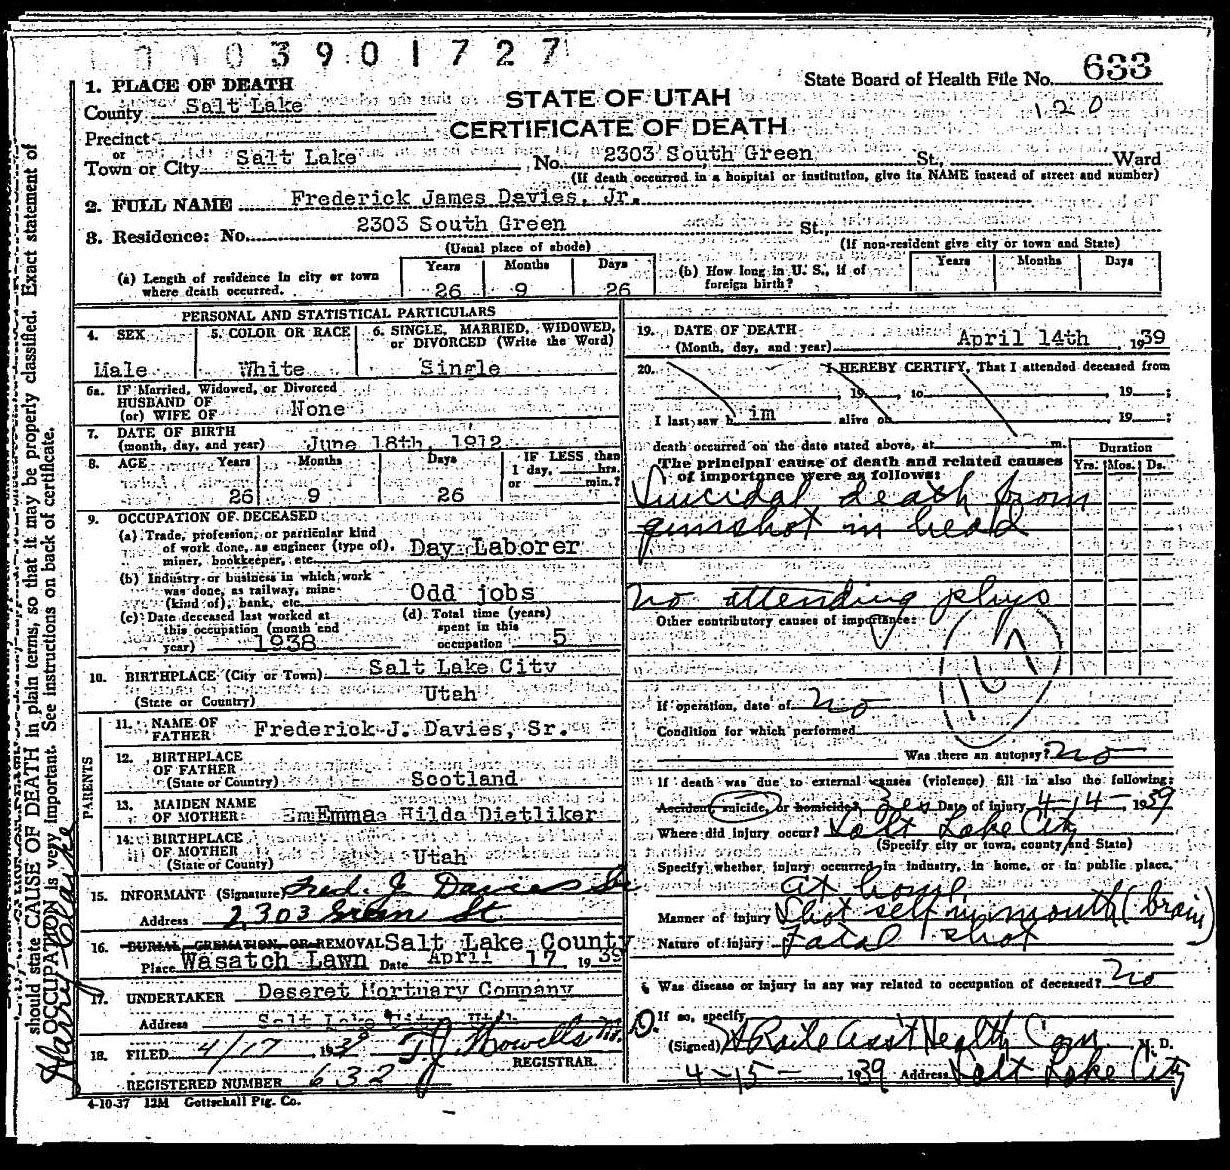 0003901727
State Board of Health File No. 633
120
STATE OF UTAH
CERTIFICATE OF DEATH
1. PLACE OF DEATH
County Salt Lake
Precinct
or
Town or City Salt Lake No. 2303 South Green St., Ward
(If death occurred in a hospital or institution, give its NAME instead of street and number)
2. FULL NAME Frederick James Davies, Jr.
3. Residence: No. 2303 South Green St.,
(Usual place of abode) (If non-resident give city or town and State)
(a) Length of residence in city or town where death occurred. Years 26 Months 9 Days 26
(b) How long in U. S., if of foreign birth? Years Months Days
PERSONAL AND STATISTICAL PARTICULARS
4. SEX Male
5. COLOR OR RACE White
6. SINGLE, MARRIED, WIDOWED, or DIVORCED (Write the Word) Single
6a. IF Married, Widowed, or Divorced
HUSBAND OF
(or) WIFE OF None
7. DATE OF BIRTH
(month, day, and year) June 18th, 1912
8. AGE Years 26 Months 9 Days 26
IF LESS than 1 day, hrs. or min.?
9. OCCUPATION OF DECEASED
(a) Trade, profession, or particular kind
of work done, as engineer (type of), Day Laborer
miner, bookkeeper, etc.
(b) Industry or business in which work
was done, as railway, mine
(kind of), bank, etc. Odd jobs
(c) Date deceased last worked at
this occupation (month end
year) 1938
(d) Total time (years)
spent in this
occupation 5
10. BIRTHPLACE (City or Town) Salt Lake City
(State or Country) Utah
PARENTS
11. NAME OF FATHER Frederick J. Davies, Sr.
12. BIRTHPLACE OF FATHER
(State or Country) Scotland
13. MAIDEN NAME
OF MOTHER Emma Hilda Dietliker
14. BIRTHPLACE OF MOTHER
(State of County) Utah
15. INFORMANT (Signature) Fred. J Davies Sr
Address 2303 Green St
16. BURIAL, CREMATION, OR REMOVAL Salt Lake County
Place Wasatch Lawn Date April 17 1939
17. UNDERTAKER Deseret Mortuary Company
Address Salt Lake City, Utah
18. FILED 4/17 1939 T J Howells M.D.
REGISTRAR.
REGISTERED NUMBER 632
4-10-37 12M Gottschall Ptg. Co.
19. DATE OF DEATH
(Month, day, and year) April 14th, 1939
20. I HEREBY CERTIFY, That I attended deceased from
19, to 19;
I last saw him alive on 19;
death occurred on the date stated above, at m.
The principal cause of death and related causes
of importance were as follows:
Duration
Yrs. Mos. Ds.
Suicidal death from
gunshot in head
No attending phys
Other contributory causes of importance:
167
If operation, date of no
Condition for which performed
Was there an autopsy? no
If death was due to external causes (violence) fill in also the following:
Accident, suicide, or homicide? Yes Date of injury 4-14-1939
Where did injury occur? Salt Lake City
(Specify city or town, county and State)
Specify whether injury occurred in industry, in home, or in public place.
at home
Manner of injury Shot self in mouth (brain)
Nature of injury Fatal shot
Was disease or injury in any way related to occupation of deceased? No
If so, specify
(Signed) Ass't Health Com. M. D.
4-15-1939 Address Salt Lake City
should state CAUSE OF DEATH in plain terms, so that it may be properly classified. Exact statement of
OCCUPATION is very important. See instructions on back of certificate.
Harry Clarke